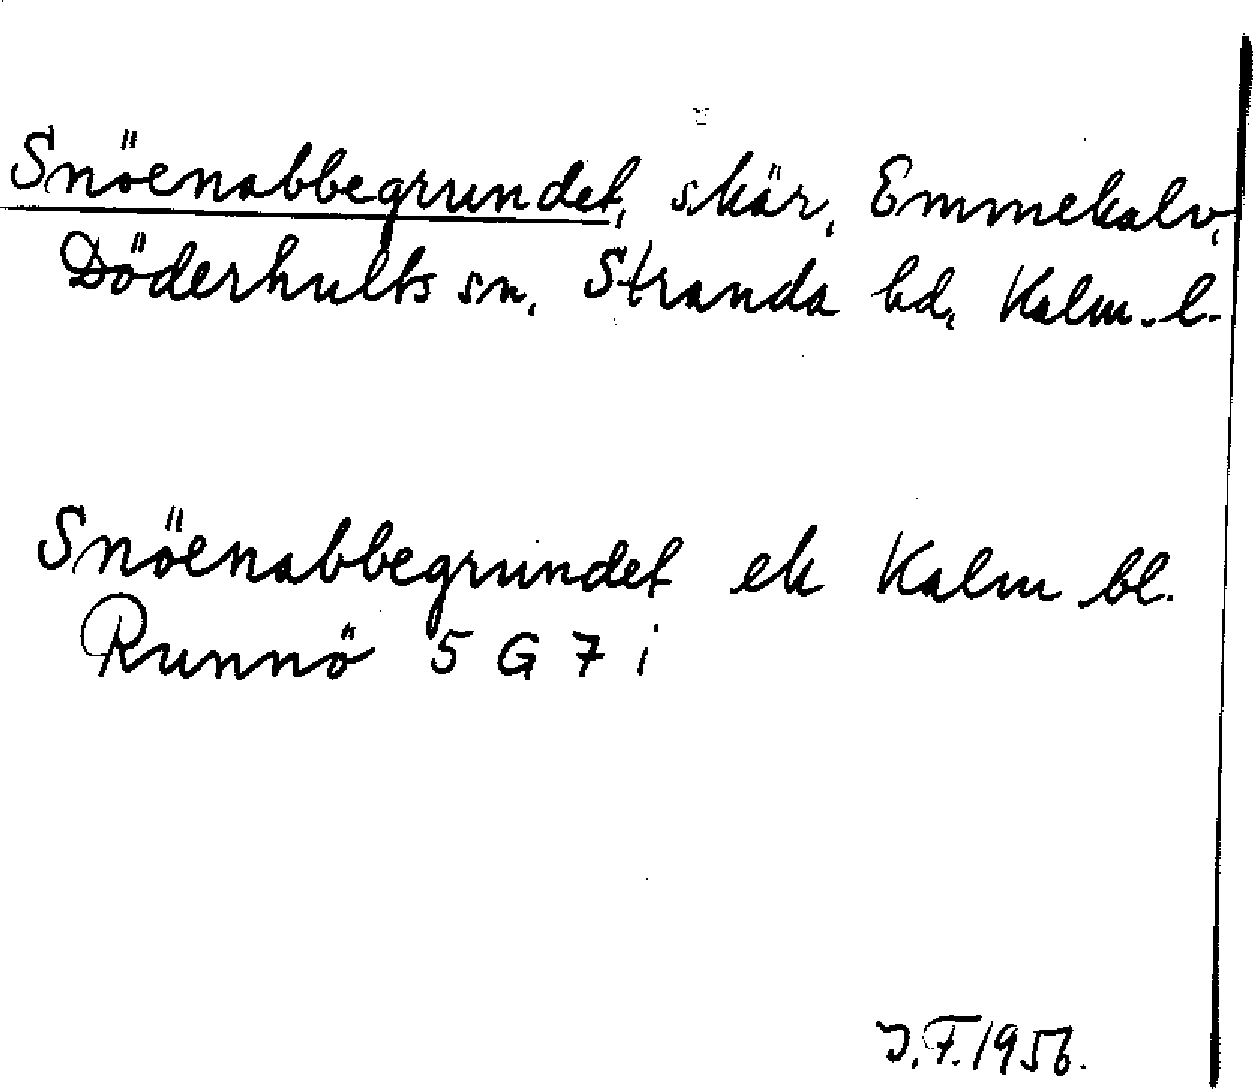 Snöenabbegrundet, skär, Emmekalv,
Döderhults sn, Stranda hd, Kalm. l.
Snöenabbegrundet ek Kalm bl.
Runnö 5 G 7 i
J.F. 1956.